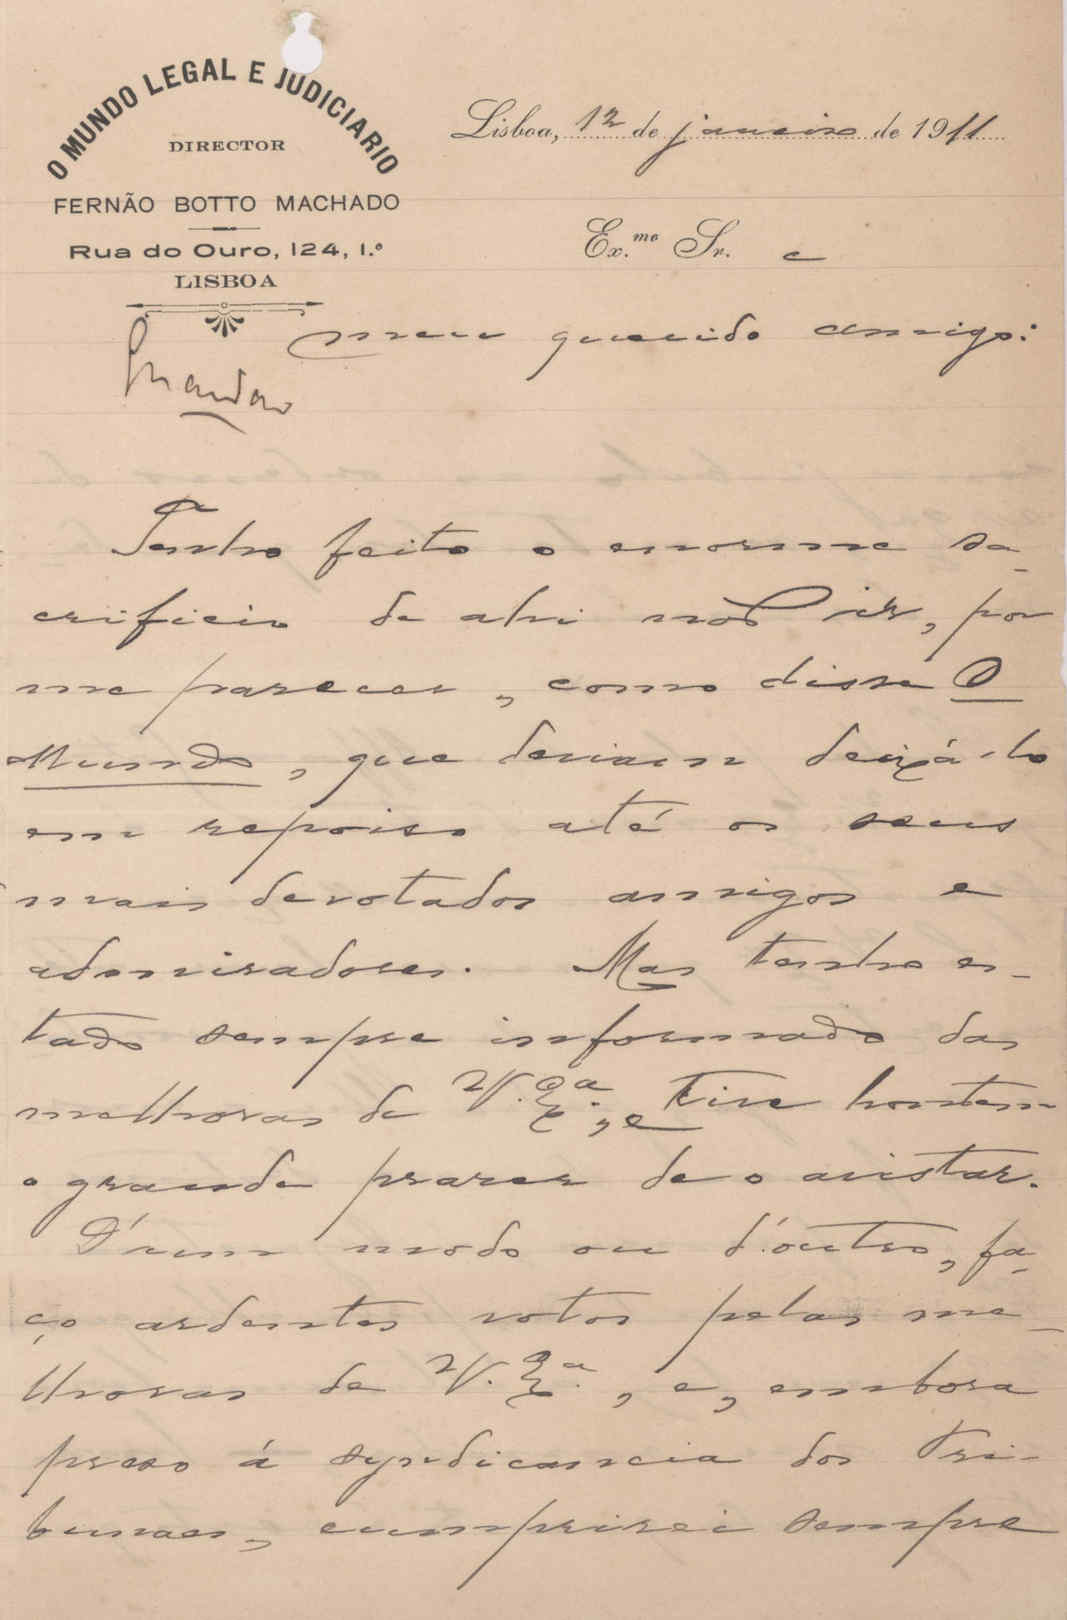 O MUNDO LEGAL E JUDICIARIO
DIRECTOR
FERNÃO BOTTO MACHADO
Rua do Ouro, 124, 1.º
LISBOA
Lisboa, 12 de janeiro de 1911
Ex.mo Sr. e
meu querido amigo:
Guardar
Tenho feito o enorme sa-
crificio de ahi não ir, por
me parecer, como disse O
Mundo, que deviam deixá-lo
em repoiso até os seus
mais devotados amigos e
admiradores. Mas tenho es-
tado sempre informado das
melhoras de V. Ex.ª; e tive hontem
o grande prazer de o avistar.
D'um modo ou d'outro, fa-
ço ardentes votos pelas me-
lhoras de V. Ex.ª, e, embora
preso á syndicancia dos Tri-
bunaes, cumprirei sempre